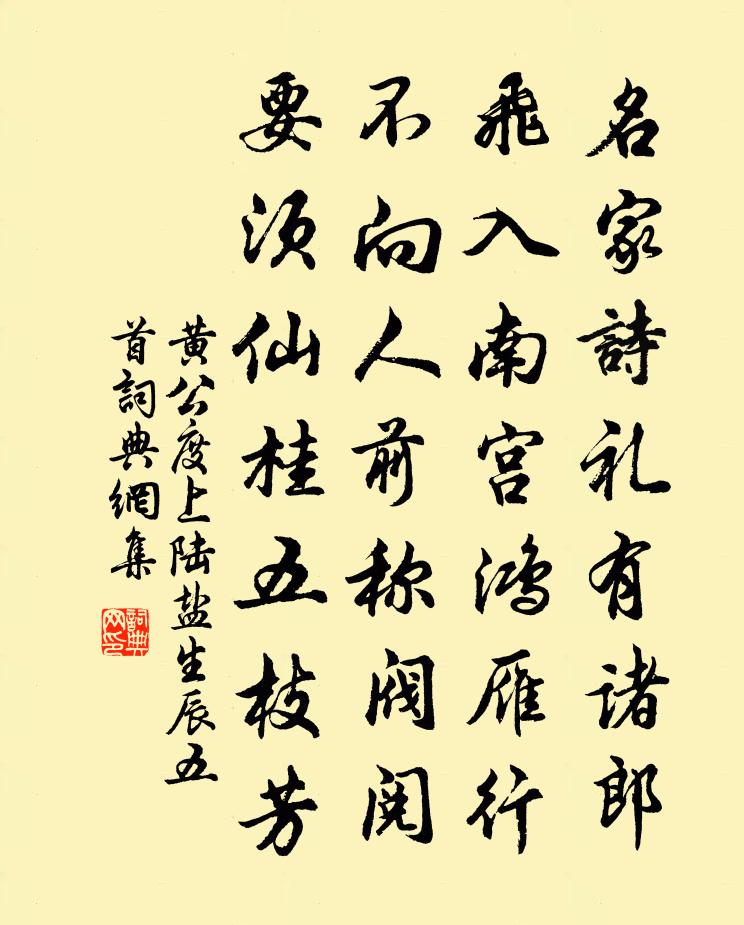 名家詩礼有诸郎
飛入南宫鴻雁行
不向人前称阀阅
要须仙桂五枝芳
黄公度上陆盐生辰五
首詞典網集
詞典
网印